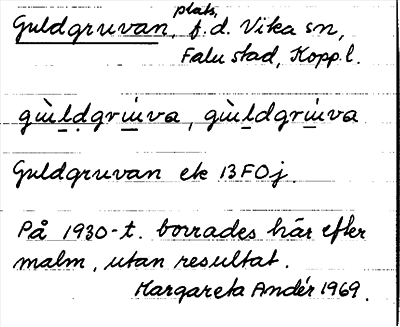 plats,
Guldgruvan, f.d. Vika sn,
Falu stad, Kopp.l.
gùl̲ḍgru̲̇va, gùl̲dgru̲̇va
Guldgruvan ek 13F0j.
På 1930-t. borrades här efter
malm, utan resultat.
Margareta Andér 1969.